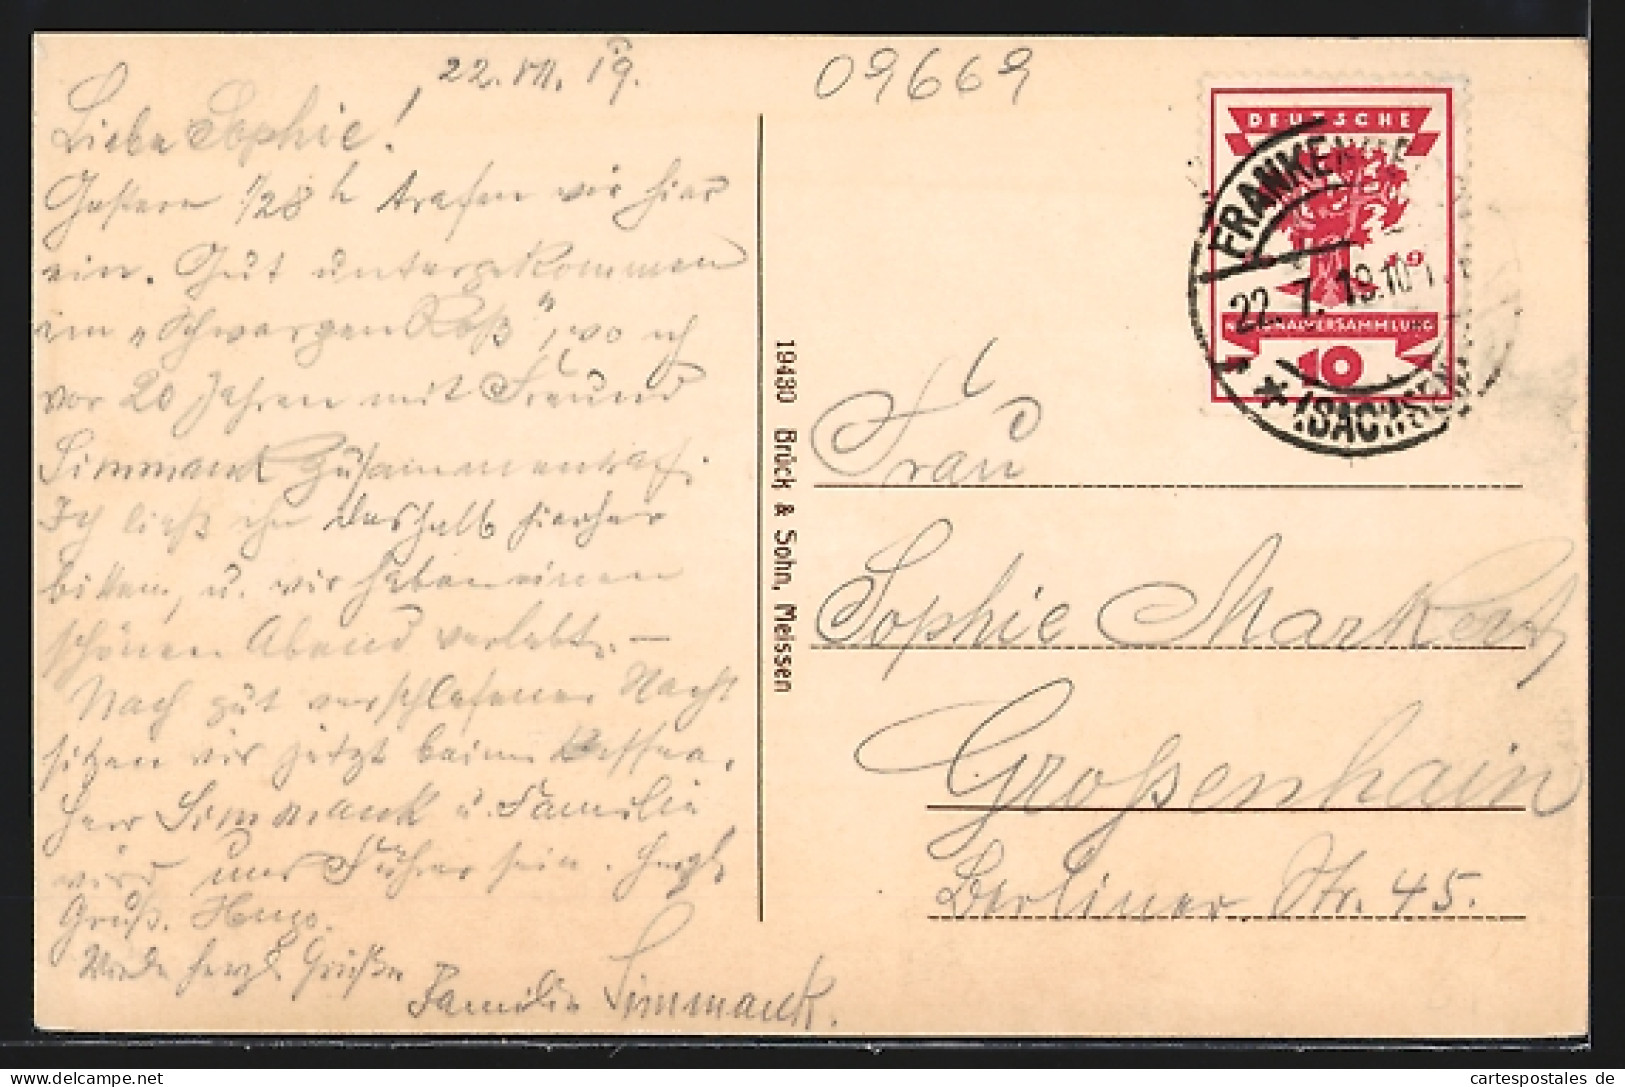 22. VII. 19.
Liebe Sophie!
Gestern 1/28 h trafen wir hier
ein. Gut untergekommen
im „Schwarzen Roß", wo ich
vor 20 Jahren mit Freund
Simmank zusammentraf.
Ich ließ ihn deshalb hierher
bitten, u. wir haben einen
schönen Abend verlebt. —
Nach gut verschlafener Nacht
sitzen wir jetzt beim Kaffee.
Herr Simmank u. Familie
wird uns Führer sein. Herzl.
Gruß. Hugo.
herzl. Grüße
Familie Simmank.
19430 Brück & Sohn, Meissen
09669
DEUTSCHE
1919
NATIONALVERSAMMLUNG
10
FRANKENBERG
22. 7. 19. 10-1
* (SACHSEN)
Frau
Sophie Markert
Großenhain
Berliner Str. 45.
cartespostales de